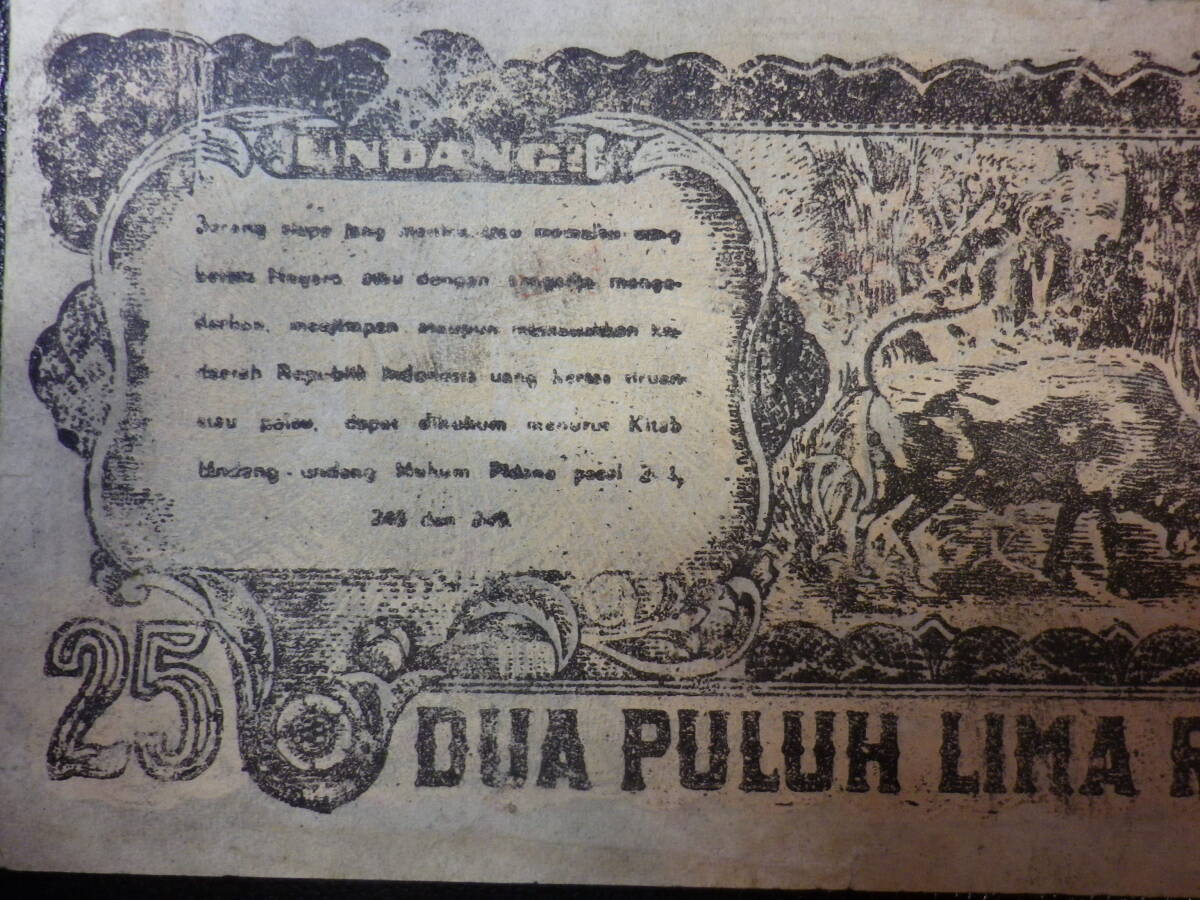 UNDANG²
Barang siapa jang meniru atau memalsu uang
kertas Negara atau dengan sengadja menge-
darkan, menjimpan ataupun memasukkan ke-
daerah Republik Indonesia uang kertas tiruan
atau palsu, dapat dihukum menurut Kitab
Undang-undang Hukum Pidana pasal
dan
25
DUA PULUH LIMA R